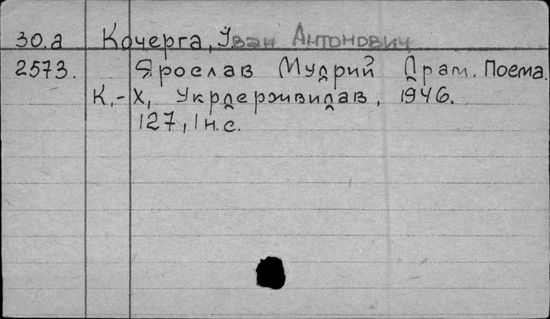 30.а Кочерга, Іван Антонович
2573. Ярослав Мудрий Драм. Поема.
К.-Х, Укрдержвидав, 1946.
127, 1 н.с.